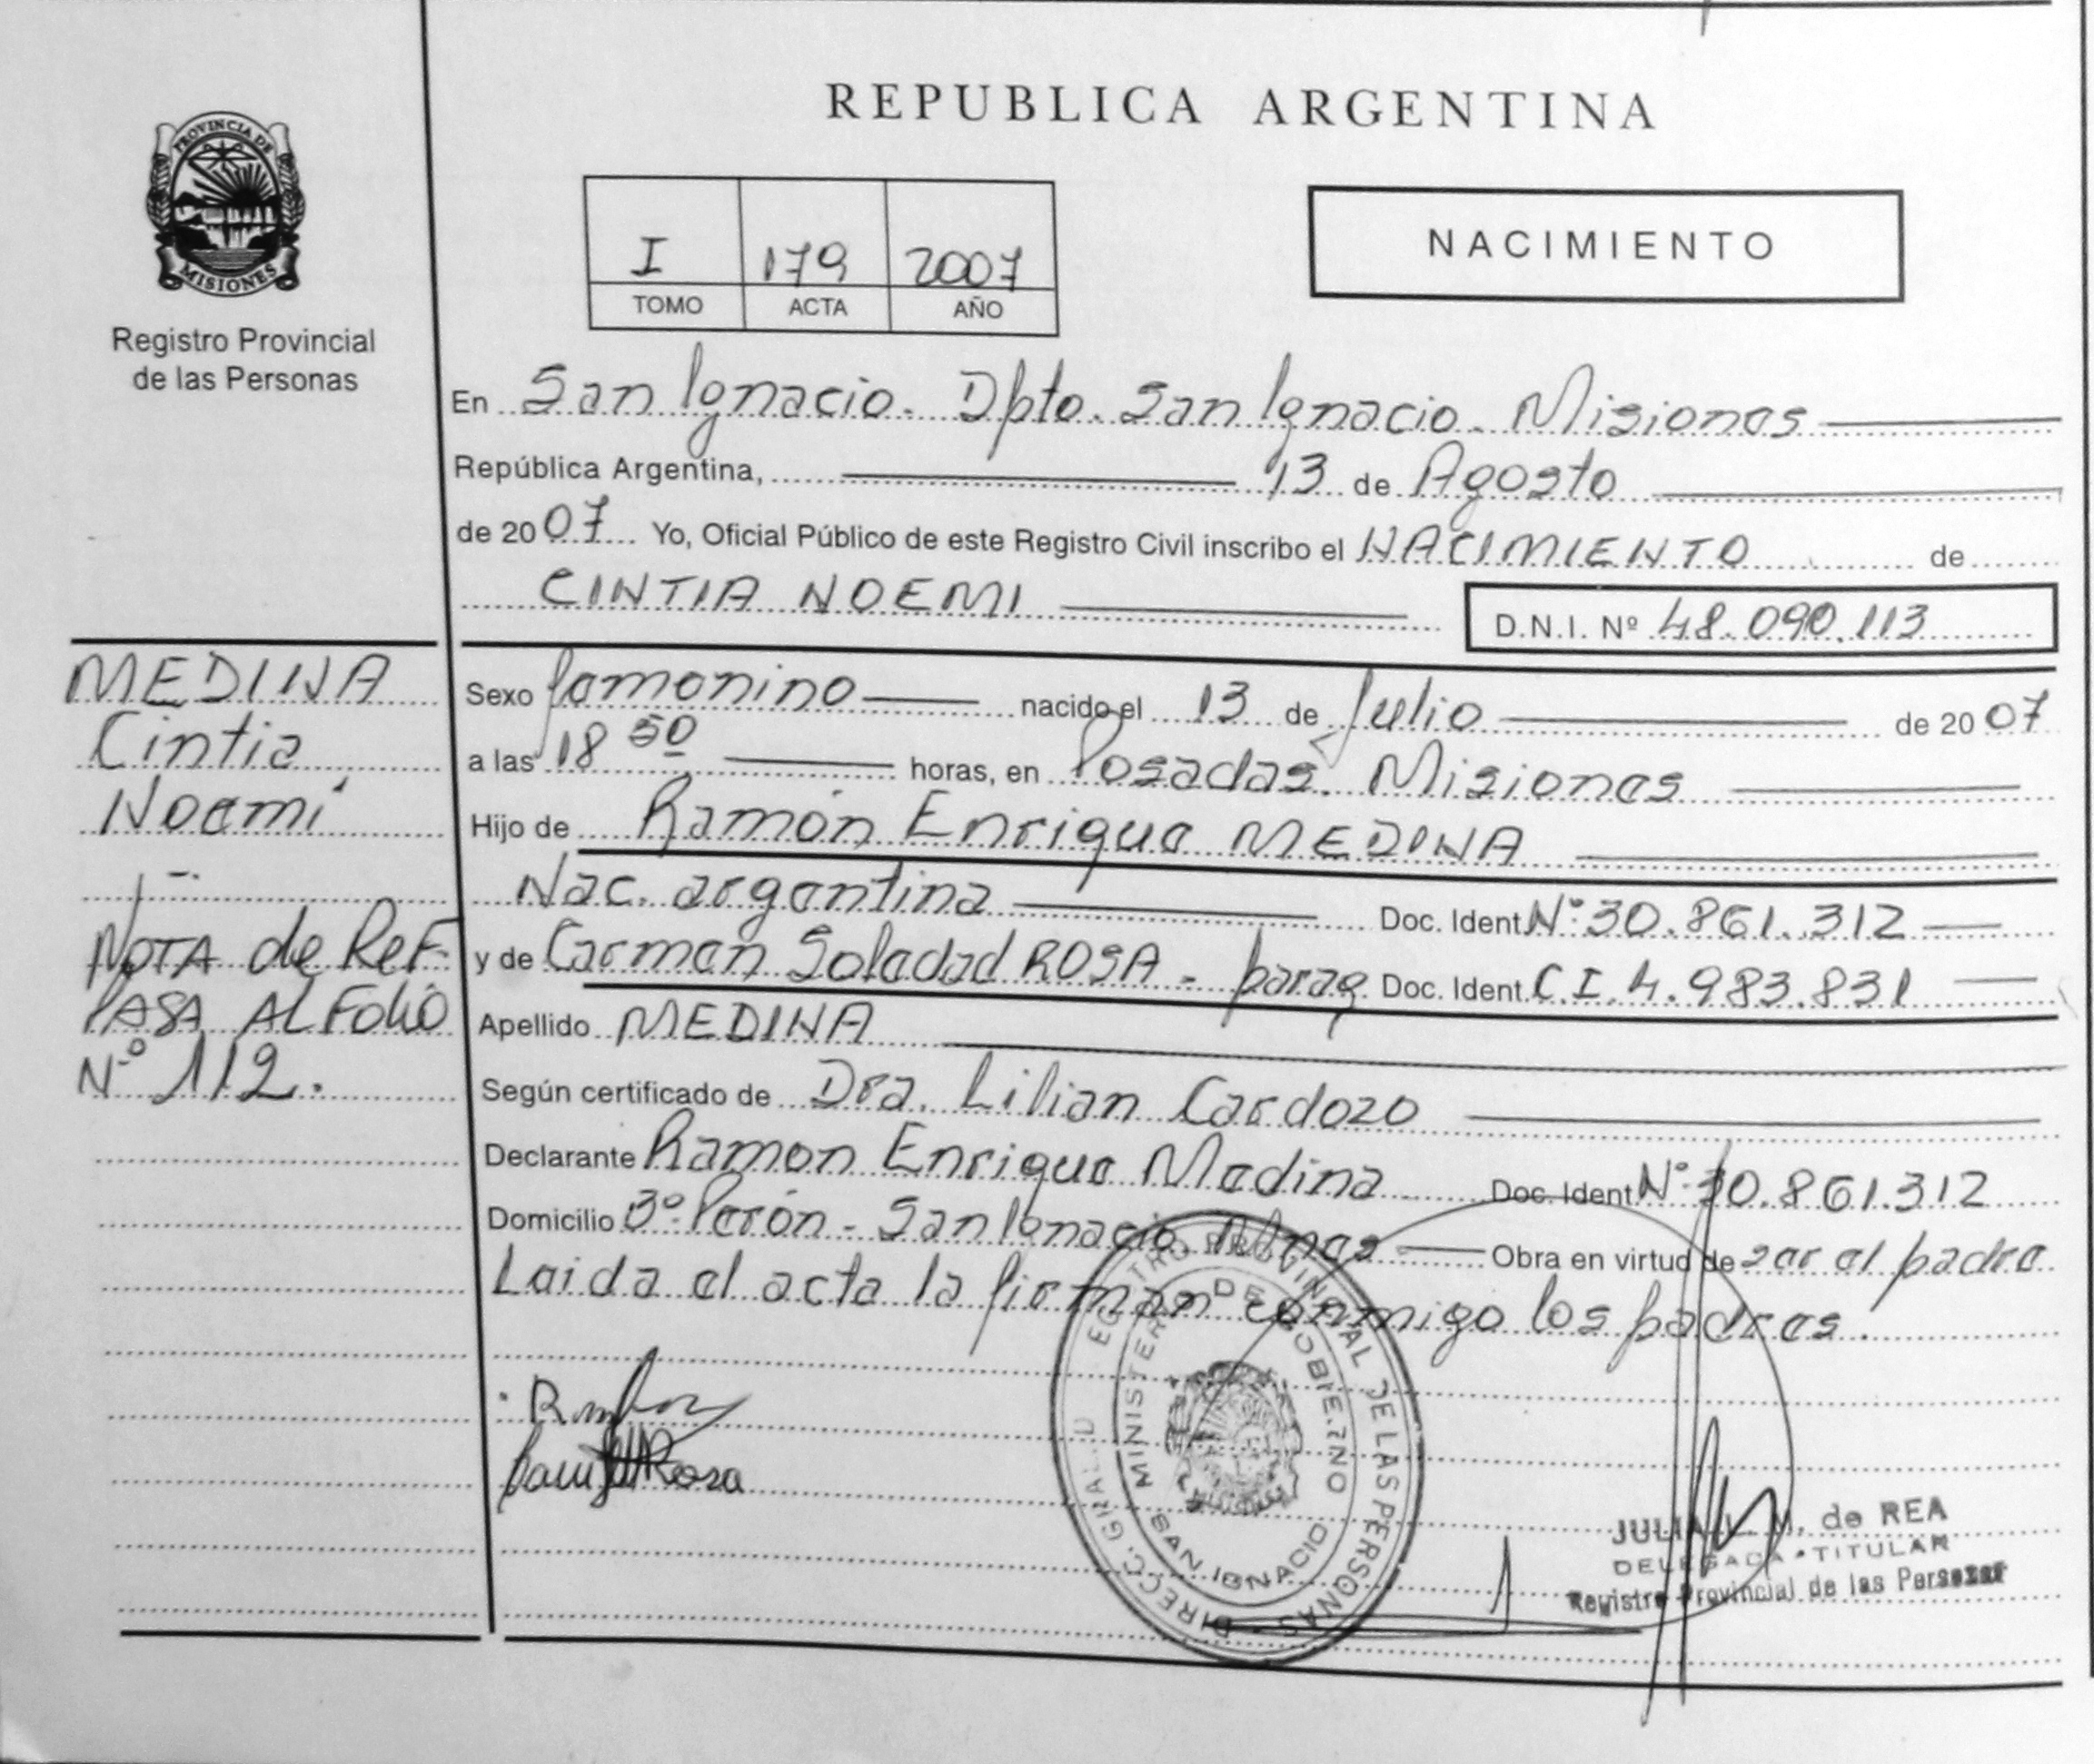 REPUBLICA ARGENTINA
PROVINCIA DE
MISIONES
Registro Provincial
de las Personas
I 179 2007
TOMO ACTA AÑO
NACIMIENTO
En San Ignacio. Dpto. San Ignacio. Misiones
República Argentina, 13 de Agosto
de 2007 Yo, Oficial Público de este Registro Civil inscribo el NACIMIENTO de
CINTIA NOEMI
D.N.I. Nº 48.090.113
MEDINA
Cintia
Noemí
NOTA de ReF.
PASA AL FoLiO
Nº 112.
Sexo femenino nacido el 13 de Julio de 2007
a las 18 50 horas, en Posadas. Misiones
Hijo de Ramón Enrique MEDINA
Nac. argentina Doc. Ident. Nº: 30.861.312
y de Carmen Soledad ROSA - parag Doc. Ident. C.I. 4.983.831
Apellido MEDINA
Según certificado de Dra. Lilian Cardozo
Declarante Ramon Enrique Medina Doc. Ident. Nº: 30.861.312
Domicilio 3º Perón - San Ignacio Mnes Obra en virtud de ser el padre
Leida el acta la firman conmigo los padres.
Rosa
REGISTRO PROVINCIAL DE LAS PERSONAS
DIRECC. GRAL. D
MINISTER DE GOBIERNO
SAN IGNACIO
JULIA L. M. de REA
DELEGADA • TITULAR
Registro Provincial de las Personas